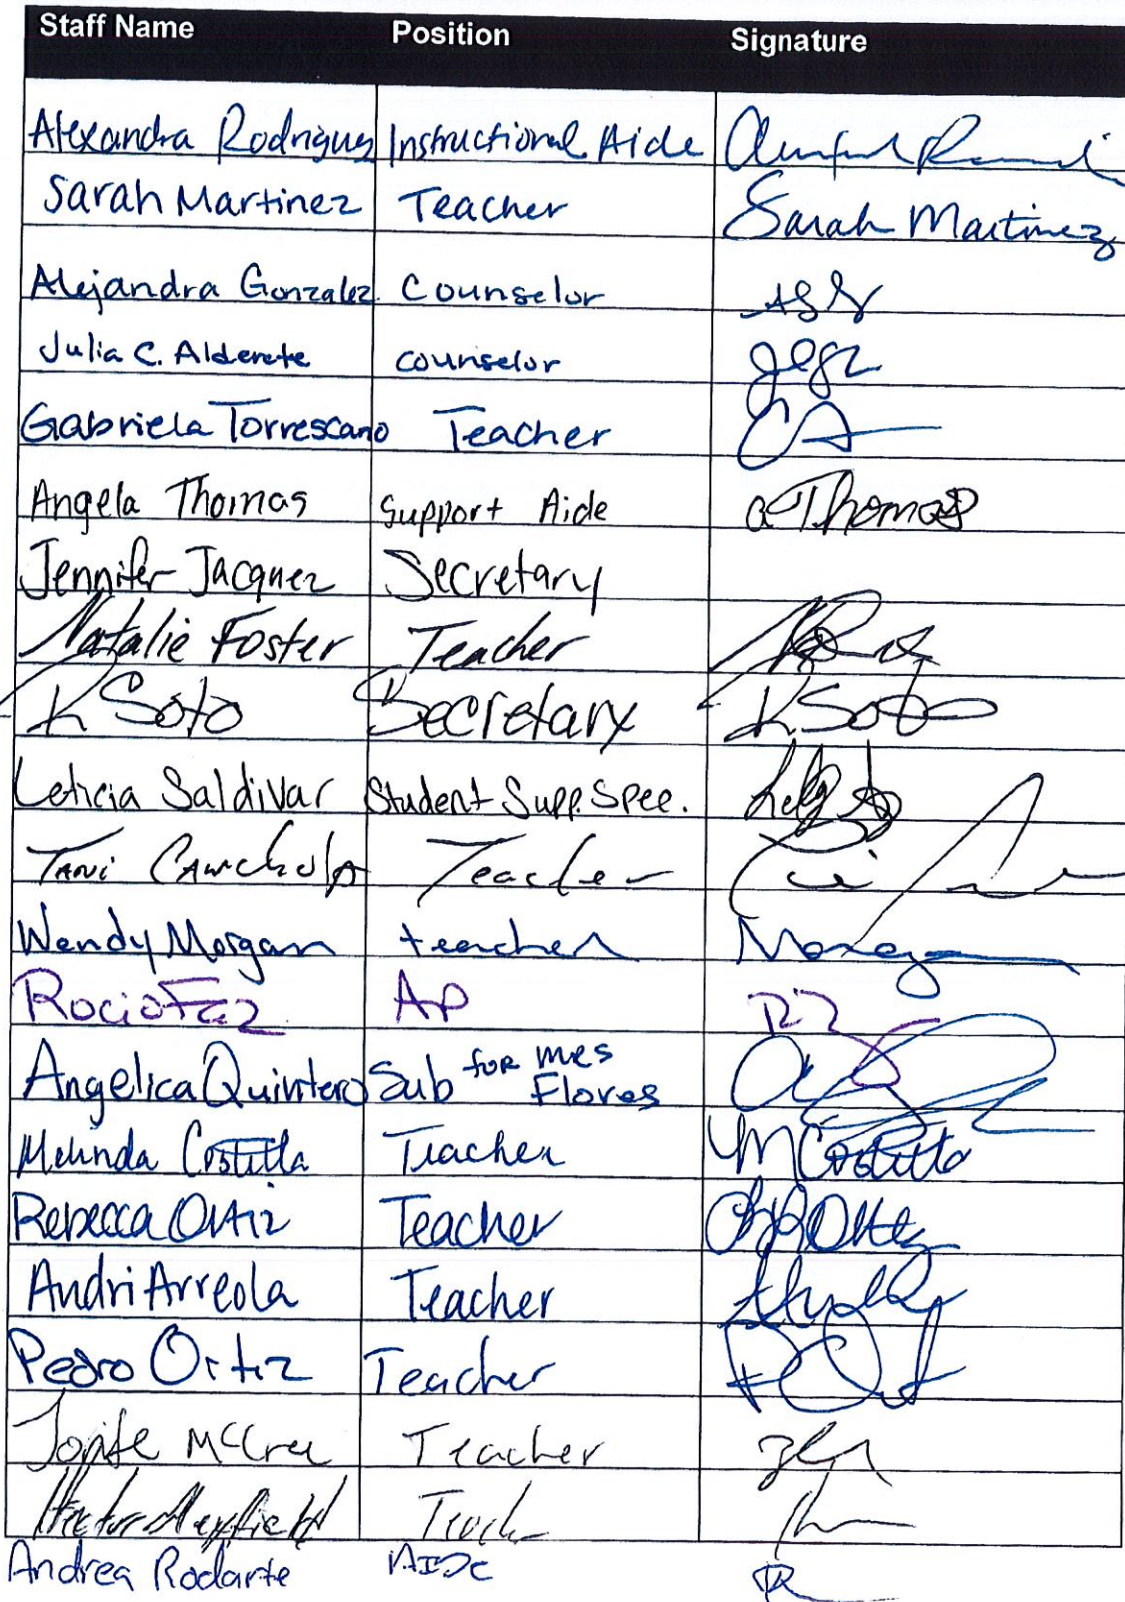 Staff Name Position Signature
Alexandra Rodriguez Instructional Aide
Sarah Martinez Teacher Sarah Martinez
Alejandra Gonzalez Counselor
Julia C. Alderete counselor
Gabriela Torrescano Teacher
Angela Thomas Support Aide a Thomas
Jennifer Jacquez Secretary
Natalie Foster Teacher
K Soto Secretary K Soto
Leticia Saldivar Student Supp. Spec.
Tani Teacher
Wendy Morgan teacher Morgan
Rocio Faz AP
Angelica Quintero Sub for mrs Flores
Melinda Costilla Teacher M Costilla
Rebecca Ortiz Teacher
Andri Arreola Teacher
Pedro Ortiz Teacher
McCrea Teacher
Hector Mayfield
Andrea Rodarte AIDE